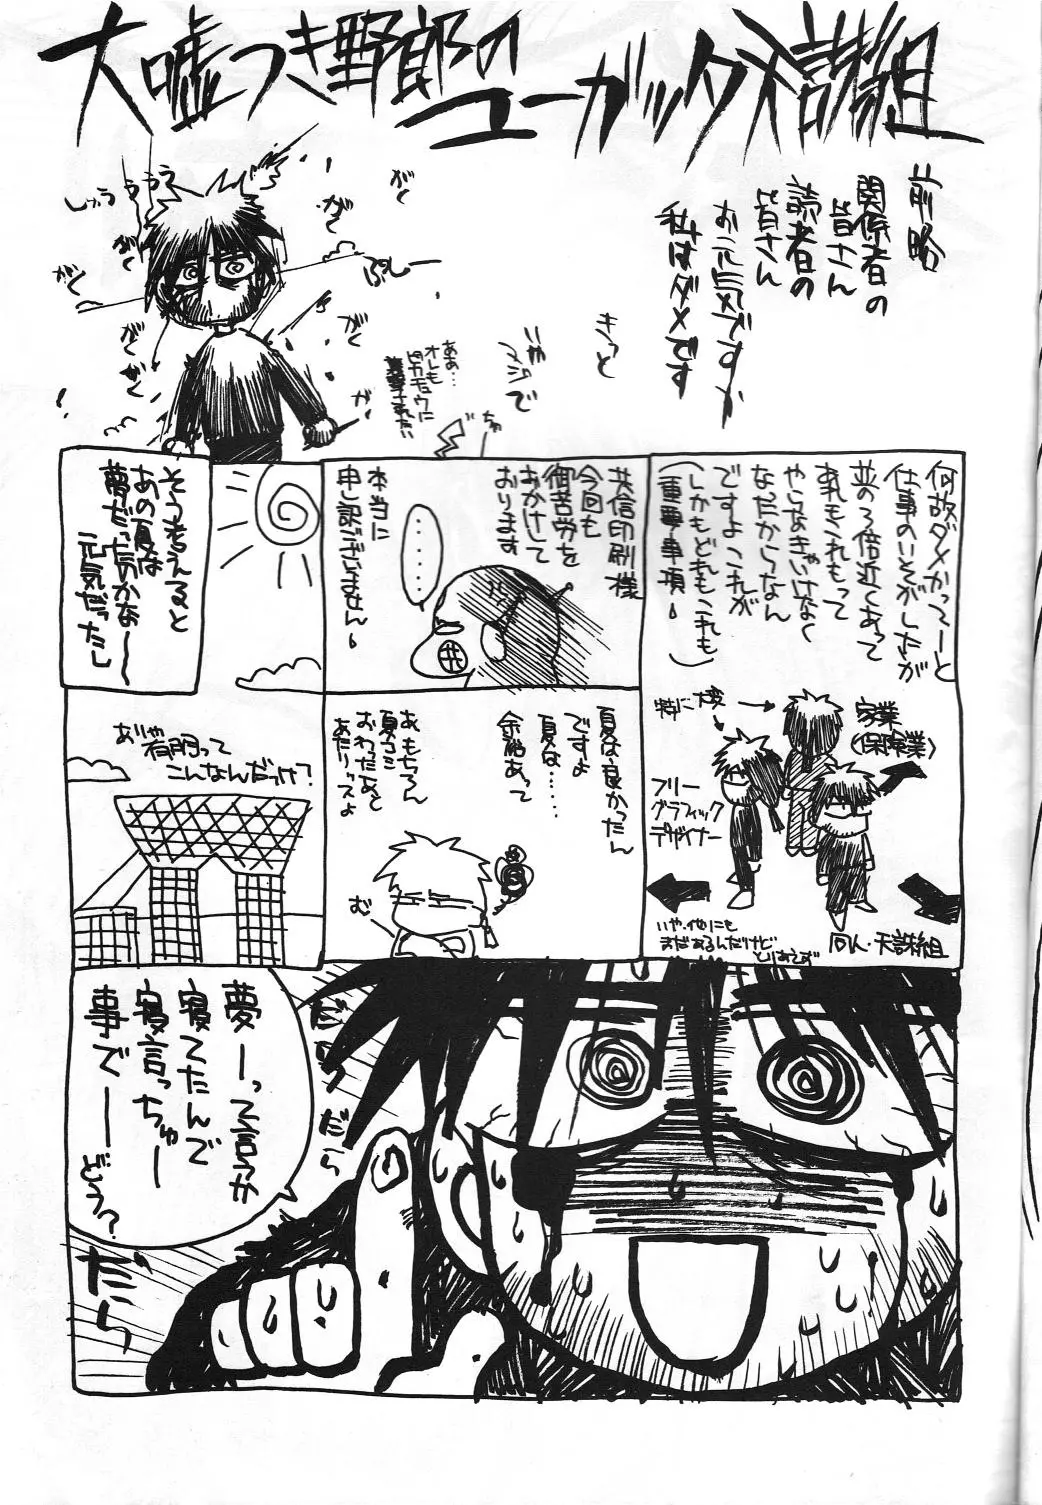 大嘘つき野郎の
ユーガッタ天誅組
前略
関係者の
皆さん
読者の
皆さん
お元気ですか
私はダメです
きっと
いや
マジで
ああ…
オレも
しゅううう
ぷしー
がく
がく
がく
がく
がく
がく
がく
が
何故ダメかってーと
仕事のいそがしさが
並の3倍近くあって
あれもこれもって
やらなきゃいけなく
なっただからなん
ですよこれが
(しかもどれもこれも
重要事項!)
特に大変
家業
(保険業)
フリー
グラフィック
デザイナー
同人・天誅組
いや、他にも
まだあるんだけど
とりあえず
共信印刷様
今回も
御苦労を
おかけして
おります
本当に
申し訳ございません!
……
夏は良かったん
ですよ
夏は……
余裕あって
あ もちろん
夏コミ
おわったあと
あたりっスよ
む
そう考えると
あの夏は
夢だったのかな〜
元気だったし
ありゃ
有明って
こんなんだっけ?
夢ーって言うか
寝てたんで
寝言っちゅー
事でー
どう?
だらだら
だら